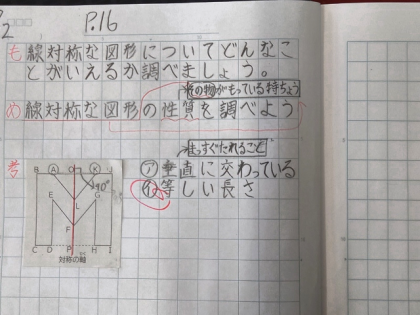 2
P.16
も 線対称な図形についてどんなこ
とがいえるか調べましょう。
その物がもっている持ちょう
め 線対称な図形の性質を調べよう
まっすぐたれること
考 ㋐垂直に交わっている
㋑等しい長さ
B A O K J
90°
E G
L
F
C D P H I
対称の軸